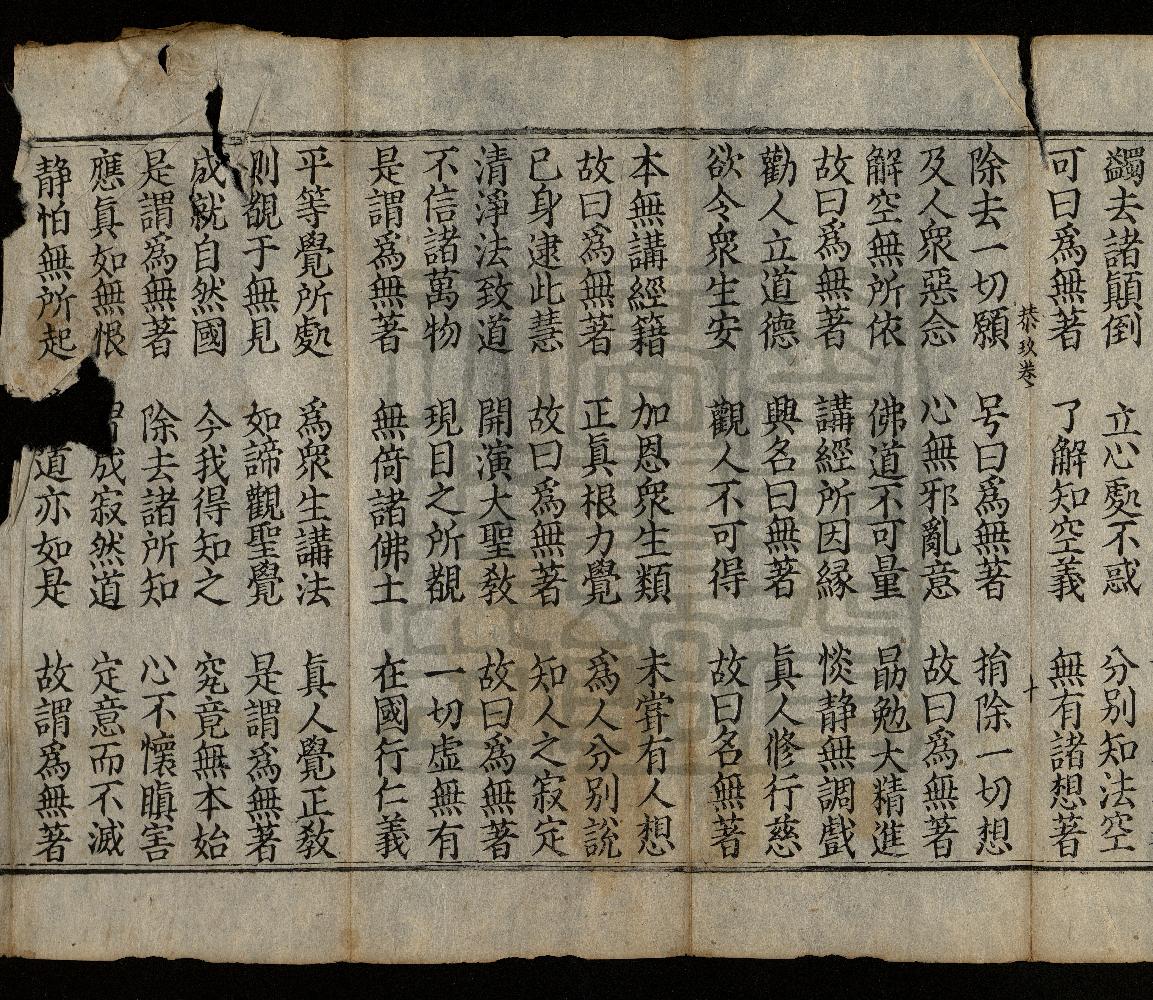 蠲去諸顛倒　立心處不惑　分別知法空
可曰爲無著　了解知空義　無有諸想著
恭玖卷　十
除去一切願　号曰爲無著　捐除一切想
及人衆惡念　心無邪亂意　故曰爲無著
解空無所依　佛道不可量　勗勉大精進
故曰爲無著　講經所因縁　惔静無調戲
勸人立道德　興名曰無著　眞人修行慈
欲令衆生安　觀人不可得　故曰名無著
本無講經籍　加恩衆生類　未甞有人想
故曰爲無著　正眞根力覺　爲人分別說
已身逮此慧　故曰爲無著　知人之寂定
清淨法致道　開演大聖教　故曰爲無著
不信諸萬物　現目之所覩　一切虛無有
是謂爲無著　無倚諸佛土　在國行仁義
平等覺所處　爲衆生講法　眞人覺正教
則覩于無見　如諦觀聖覺　是謂爲無著
成就自然國　今我得知之　究竟無本始
是謂爲無著　除去諸所知　心不懷瞋害
應眞如無恨　成寂然道　定意而不滅
静怕無所起　道亦如是　故謂爲無著